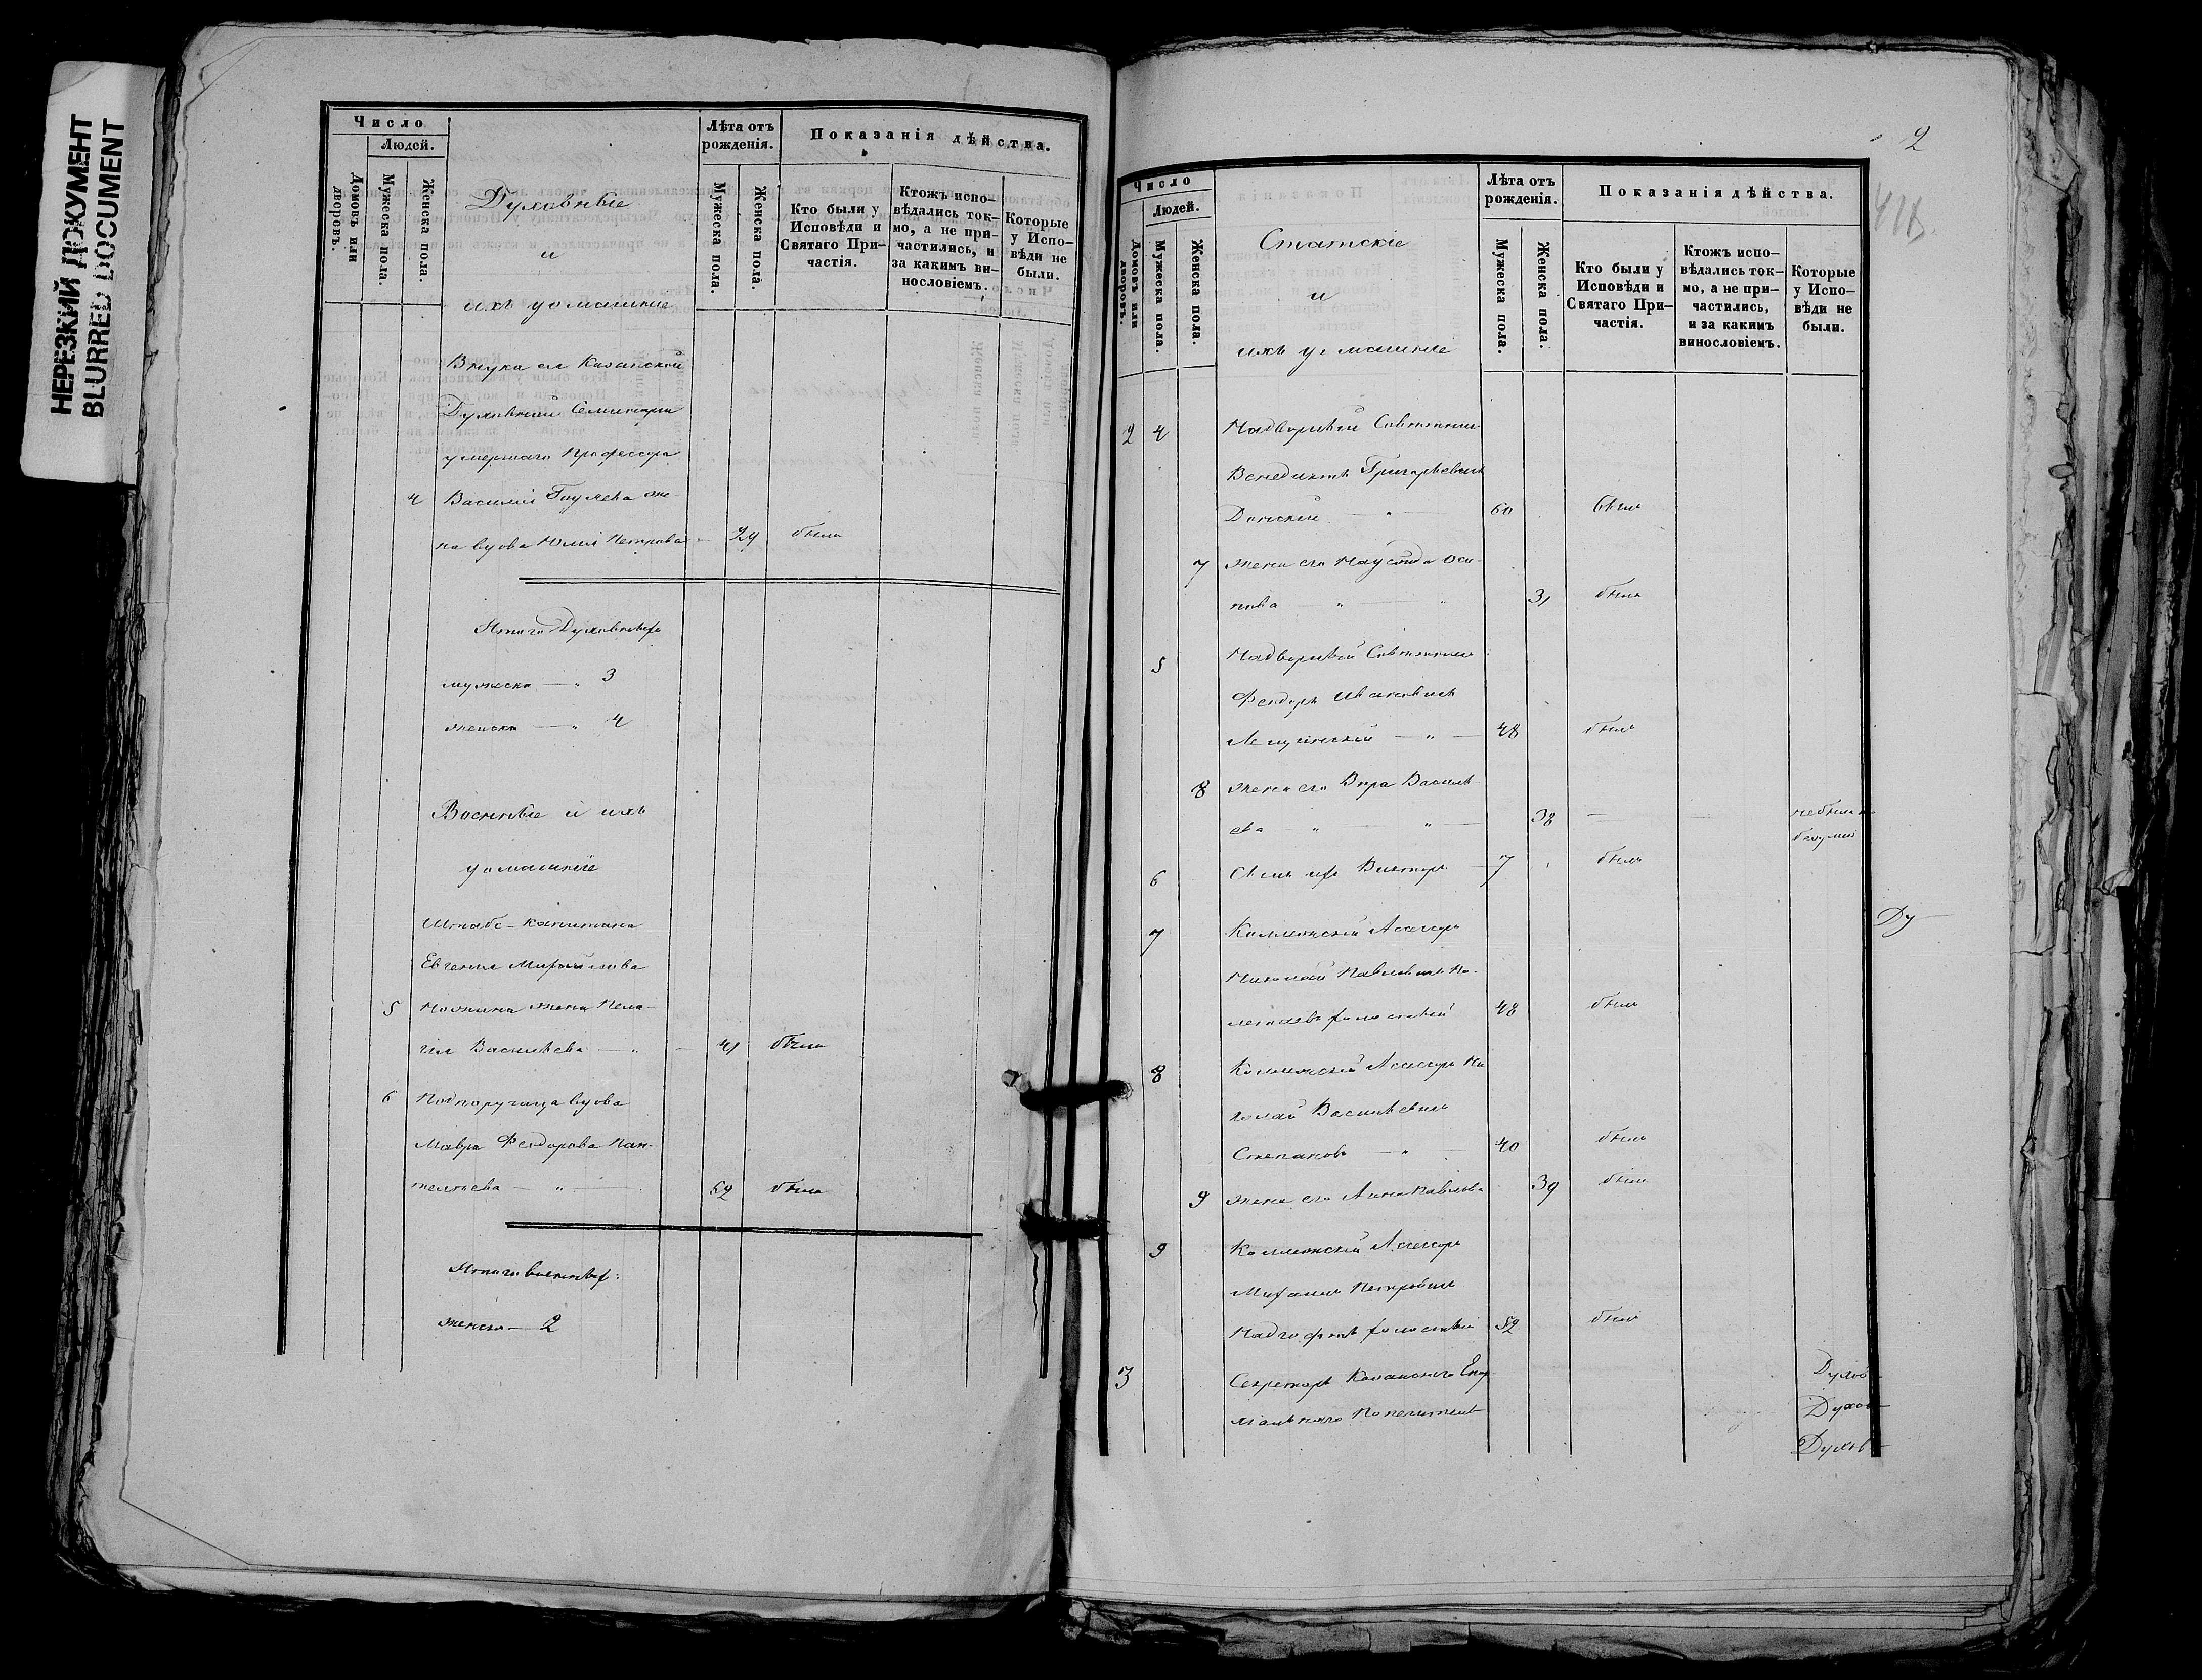 НЕРЕЗКИЙ ДОКУМЕНТ
BLURRED DOCUMENT
Число
Людей.
Домовъ или дворовъ.
Мужеска пола.
Женска пола.
Духовные
и
ихъ домашние
Лѣта отъ рожденія.
Мужеска пола.
Женска пола.
Показанія дѣйства.
Кто были у Исповѣди и Святаго При-
частія.
Ктожъ испо-
вѣдались ток-
мо, а не при-
частились, и
за какимъ ви-
нословіемъ.
Которые
у Испо-
вѣди не
были.
Внука ея Казанской
Духовной Семинаріи
умершаго Профессора
4 Василія же-
на вдова Юлія Петрова 29 была
Итого Духовныхъ
мужеска — " 3
женска — " 4
Военные и ихъ
домашніе
Штабс-капитана
Евгенія Михайлова
5 жена Пела-
гія Васильева — " — 41 была
6 Подпоручица вдова
Мавра Феодорова Пан-
телеева — " — 52 была
Итого военныхъ:
женска — 2
2
418
Число
Людей.
Домовъ или дворовъ.
Мужеска пола.
Женска пола.
Статскіе
и
ихъ домашніе
Лѣта отъ
рожденія.
Мужеска пола.
Женска пола.
Показанія дѣйства.
Кто были у
Исповѣди и
Святаго При-
частія.
Ктожъ испо-
вѣдались ток-
мо, а не при-
частились,
и за какимъ
винословіемъ.
Которые
у Испо-
вѣди не
были.
2 4 Надворный Совѣтникъ
Венедиктъ Григорьевичъ
Донской — " — 60 былъ
7 жена его Оси-
пова — " — " 31 была
5 Надворный Совѣтникъ
Феодоръ Ивановичъ
— " — 48 былъ
8 жена его Вѣра Василь
ева — " — " — 38 — — не была по
безумію
6 Сынъ ихъ Викторъ — 7 былъ
Ду—
7 Коллежскій Асессоръ
Николай Павловичъ По-
холостый 48 былъ
8 Коллежскій Асессоръ Ни
колай Васильевичъ
Степановъ — " — 40 былъ
9 жена его Анна Павлова 39 была
9 Коллежскій Асессоръ
Михаилъ Петровичъ
холостый 52 былъ
3 Секретарь Казанскаго Епар
хіальнаго Попечительст
Духов—
Духов—
Духов—